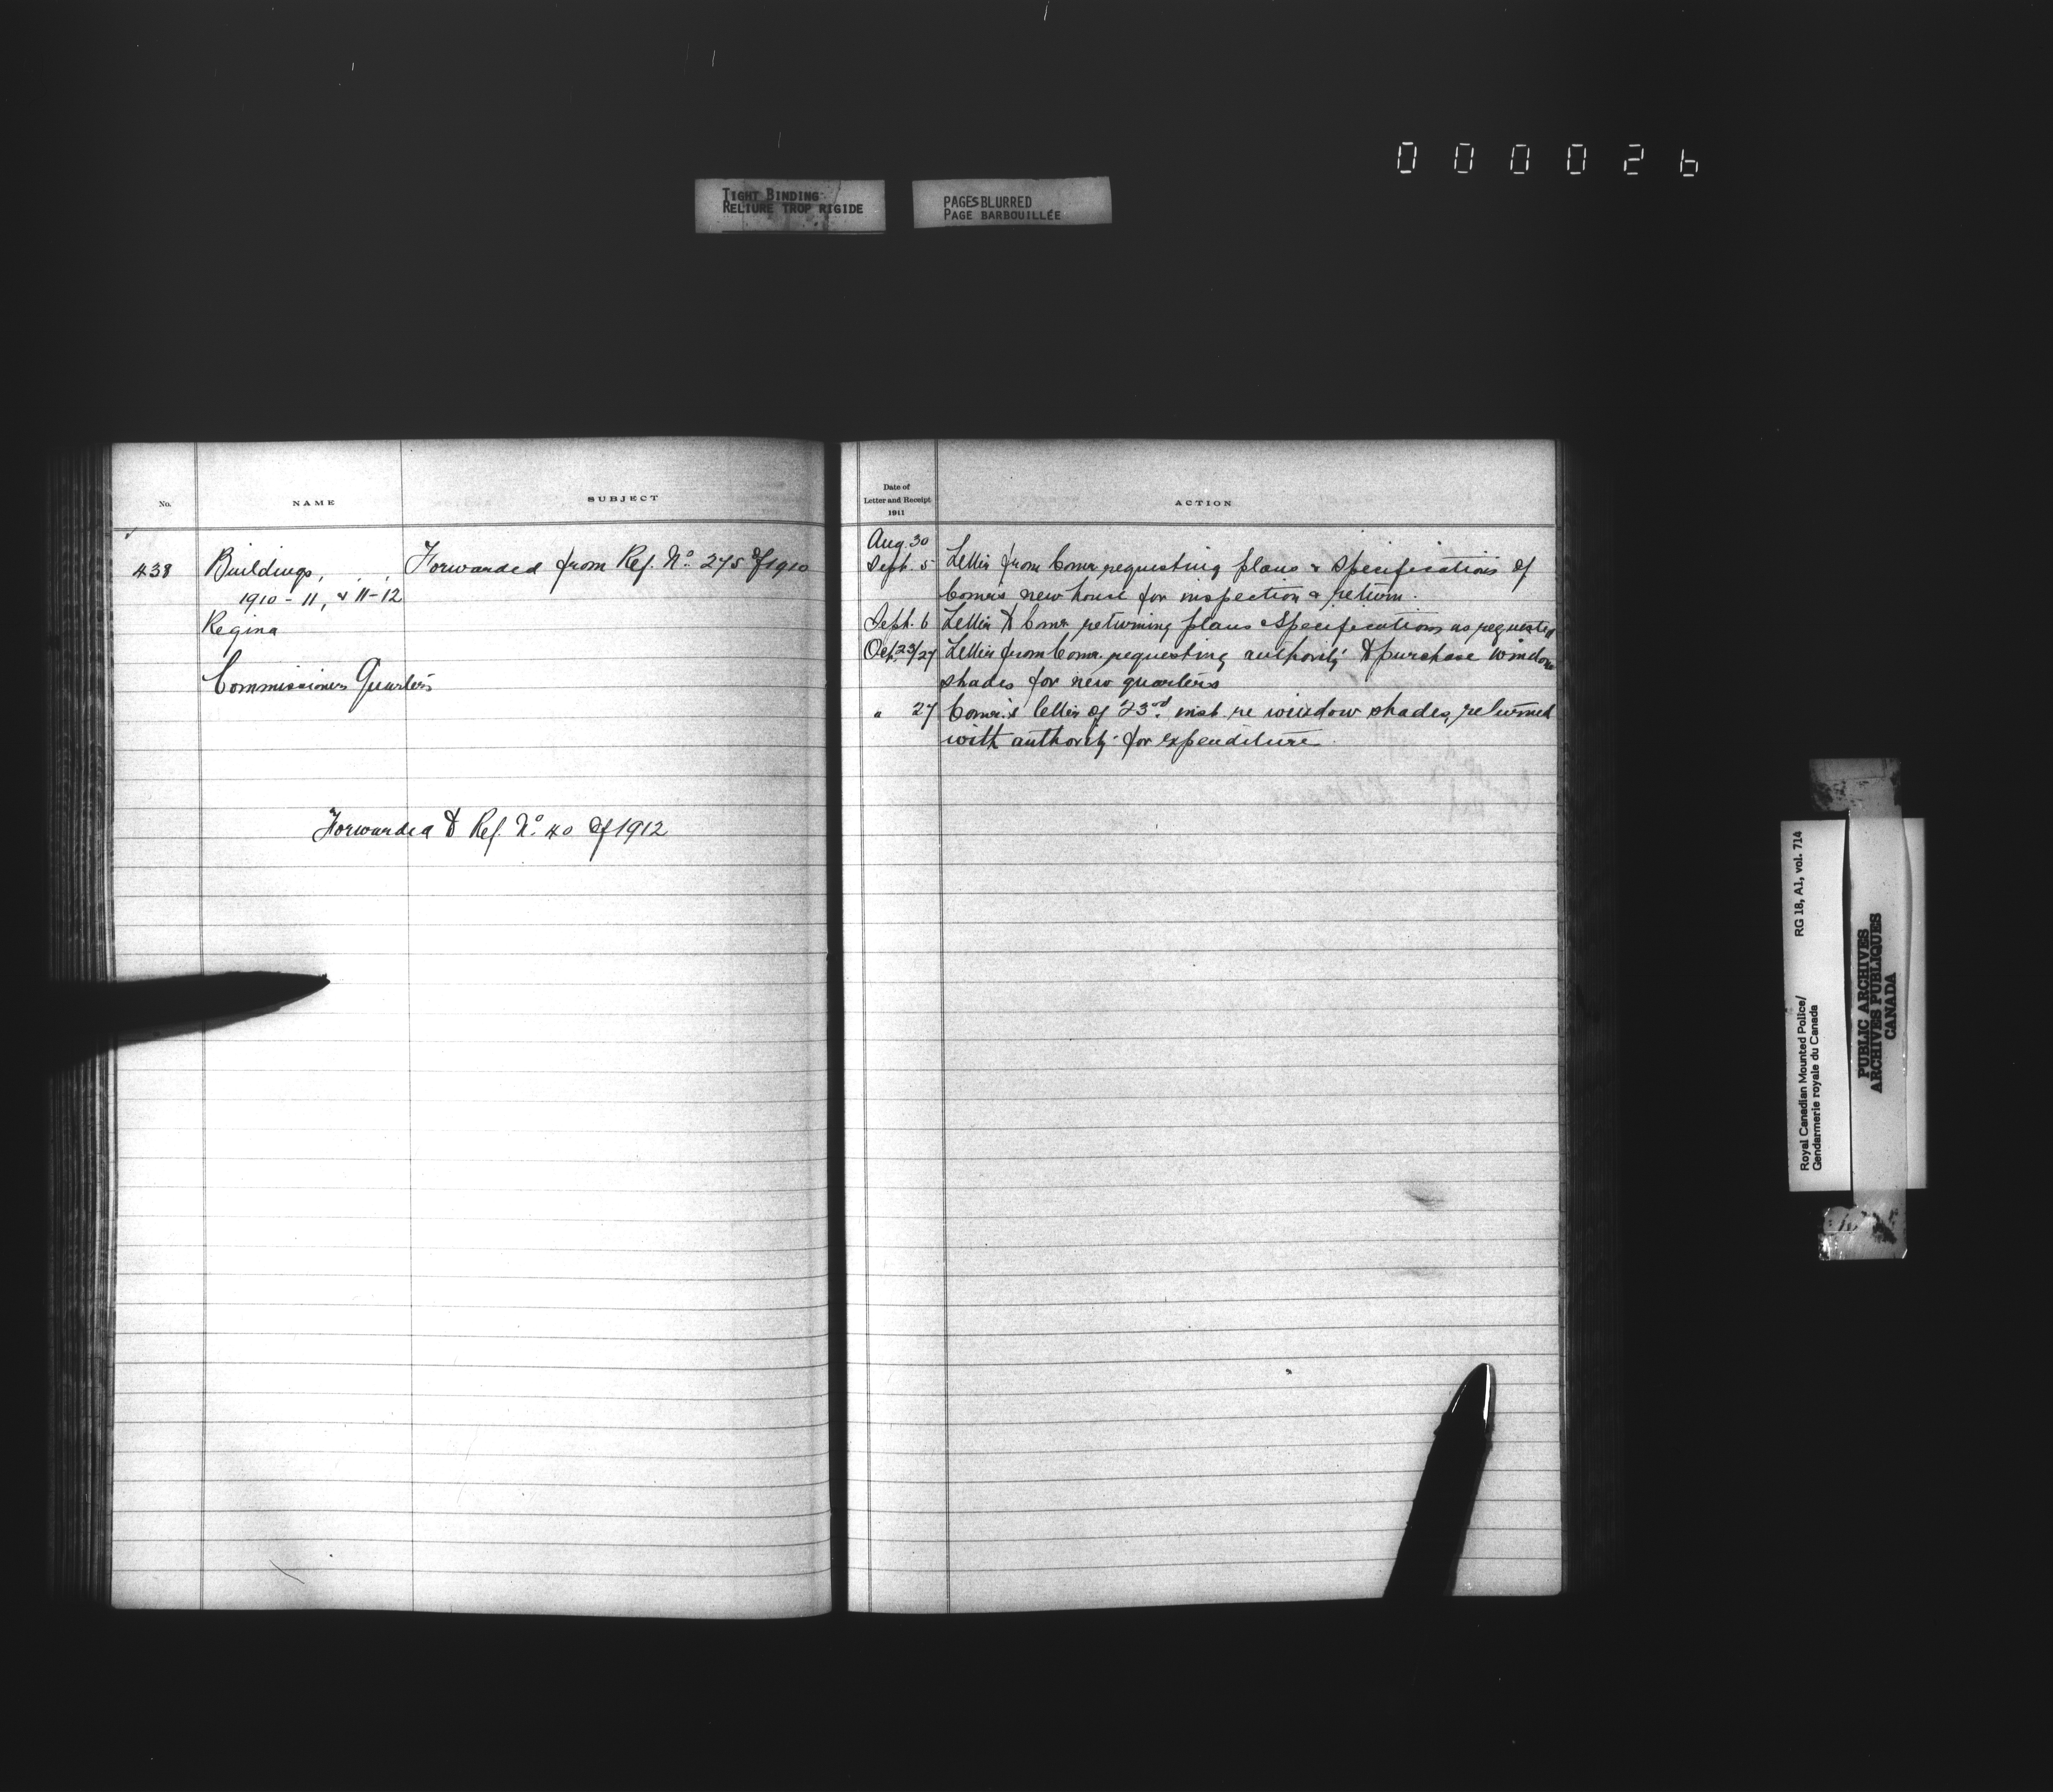 000026
TIGHT BINDING
RELIURE TROP RIGIDE
PAGES BLURRED
PAGE BARBOUILLÉE
No.
NAME
SUBJECT
438
Buildings,
1910-11, & 11-12
Regina
Commissioners Quarters
Forwarded from Ref. No. 275 of 1910
Forwarded to Ref. No. 40 of 1912
Date of
Letter and Receipt
1911
ACTION
Aug. 30
Sept. 5 Letter from Comr. requesting plans & specifications of
Comr's new house for inspection & return.
Sept. 6 Letter to Comr. returning plans & specifications as requested
Oct. 23/27 Letter from Comr. requesting authority to purchase window
shades for new quarters
" 27 Comr.'s letter of 23rd. inst. re window shades, returned
with authority for expenditure.
Royal Canadian Mounted Police/
Gendarmerie royale du Canada
RG 18, A1, vol. 714
PUBLIC ARCHIVES
ARCHIVES PUBLIQUES
CANADA